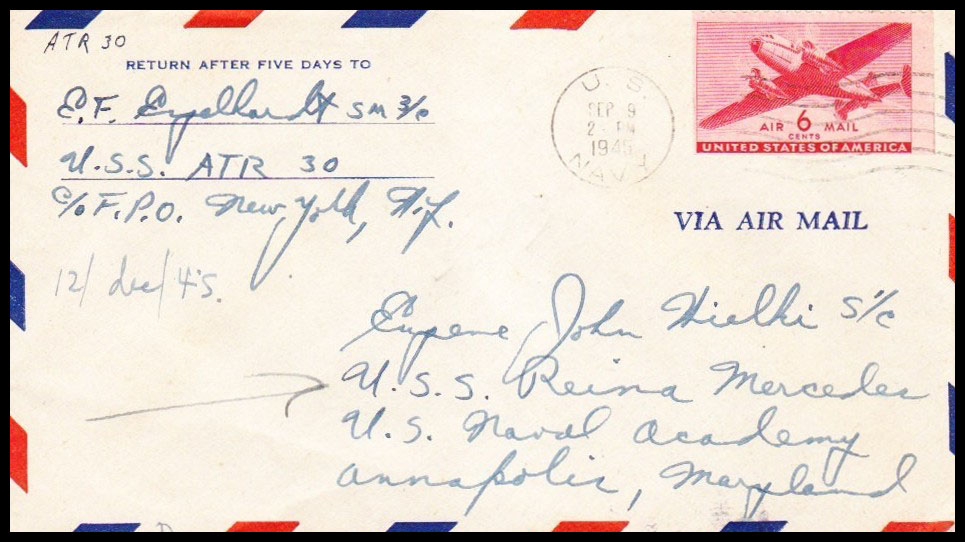 ATR 30
RETURN AFTER FIVE DAYS TO
E.F. Engelhardt SM 3/c
U.S.S. ATR 30
c/o F.P.O. New York, N.Y.
12/dec/45.
U. S.
SEP 9
2 PM
1945
NAVY
AIR 6 MAIL
CENTS
UNITED STATES OF AMERICA
VIA AIR MAIL
Eugene John Hielki S1/c
U.S.S. Reina Mercedes
U.S. Naval Academy
Annapolis, Maryland